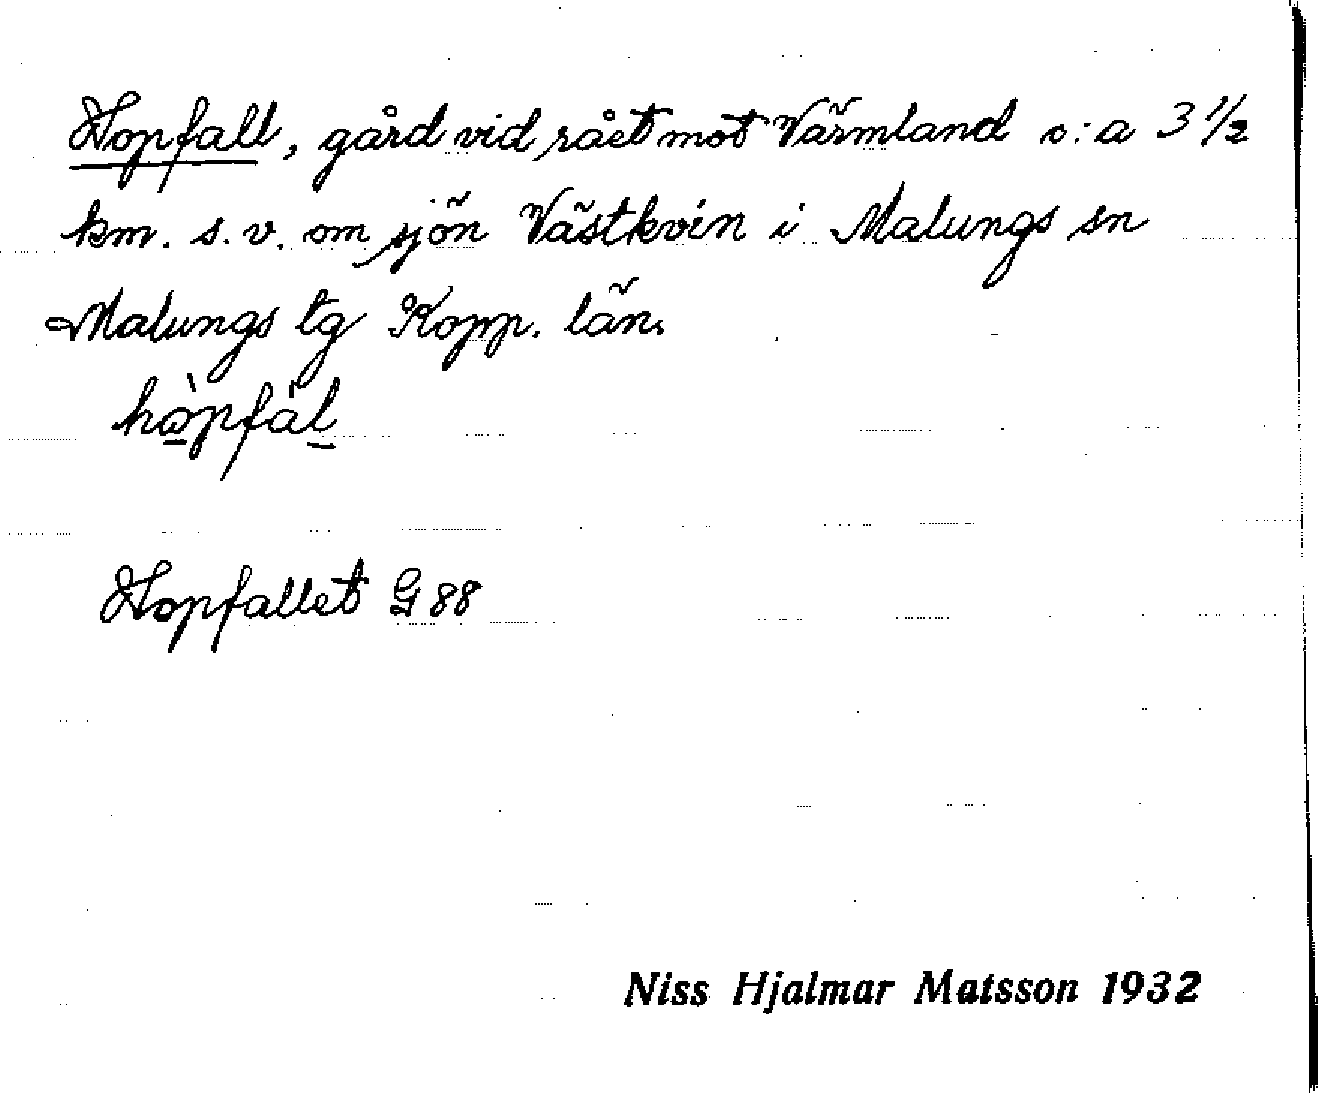 Hopfall, gård vid rået mot Värmland c:a 3 1/2
km. s.v. om sjön Västkvin i Malungs sn
Malungs tg Kopp. län.
Hopfallet G 88
Niss Hjalmar Matsson 1932